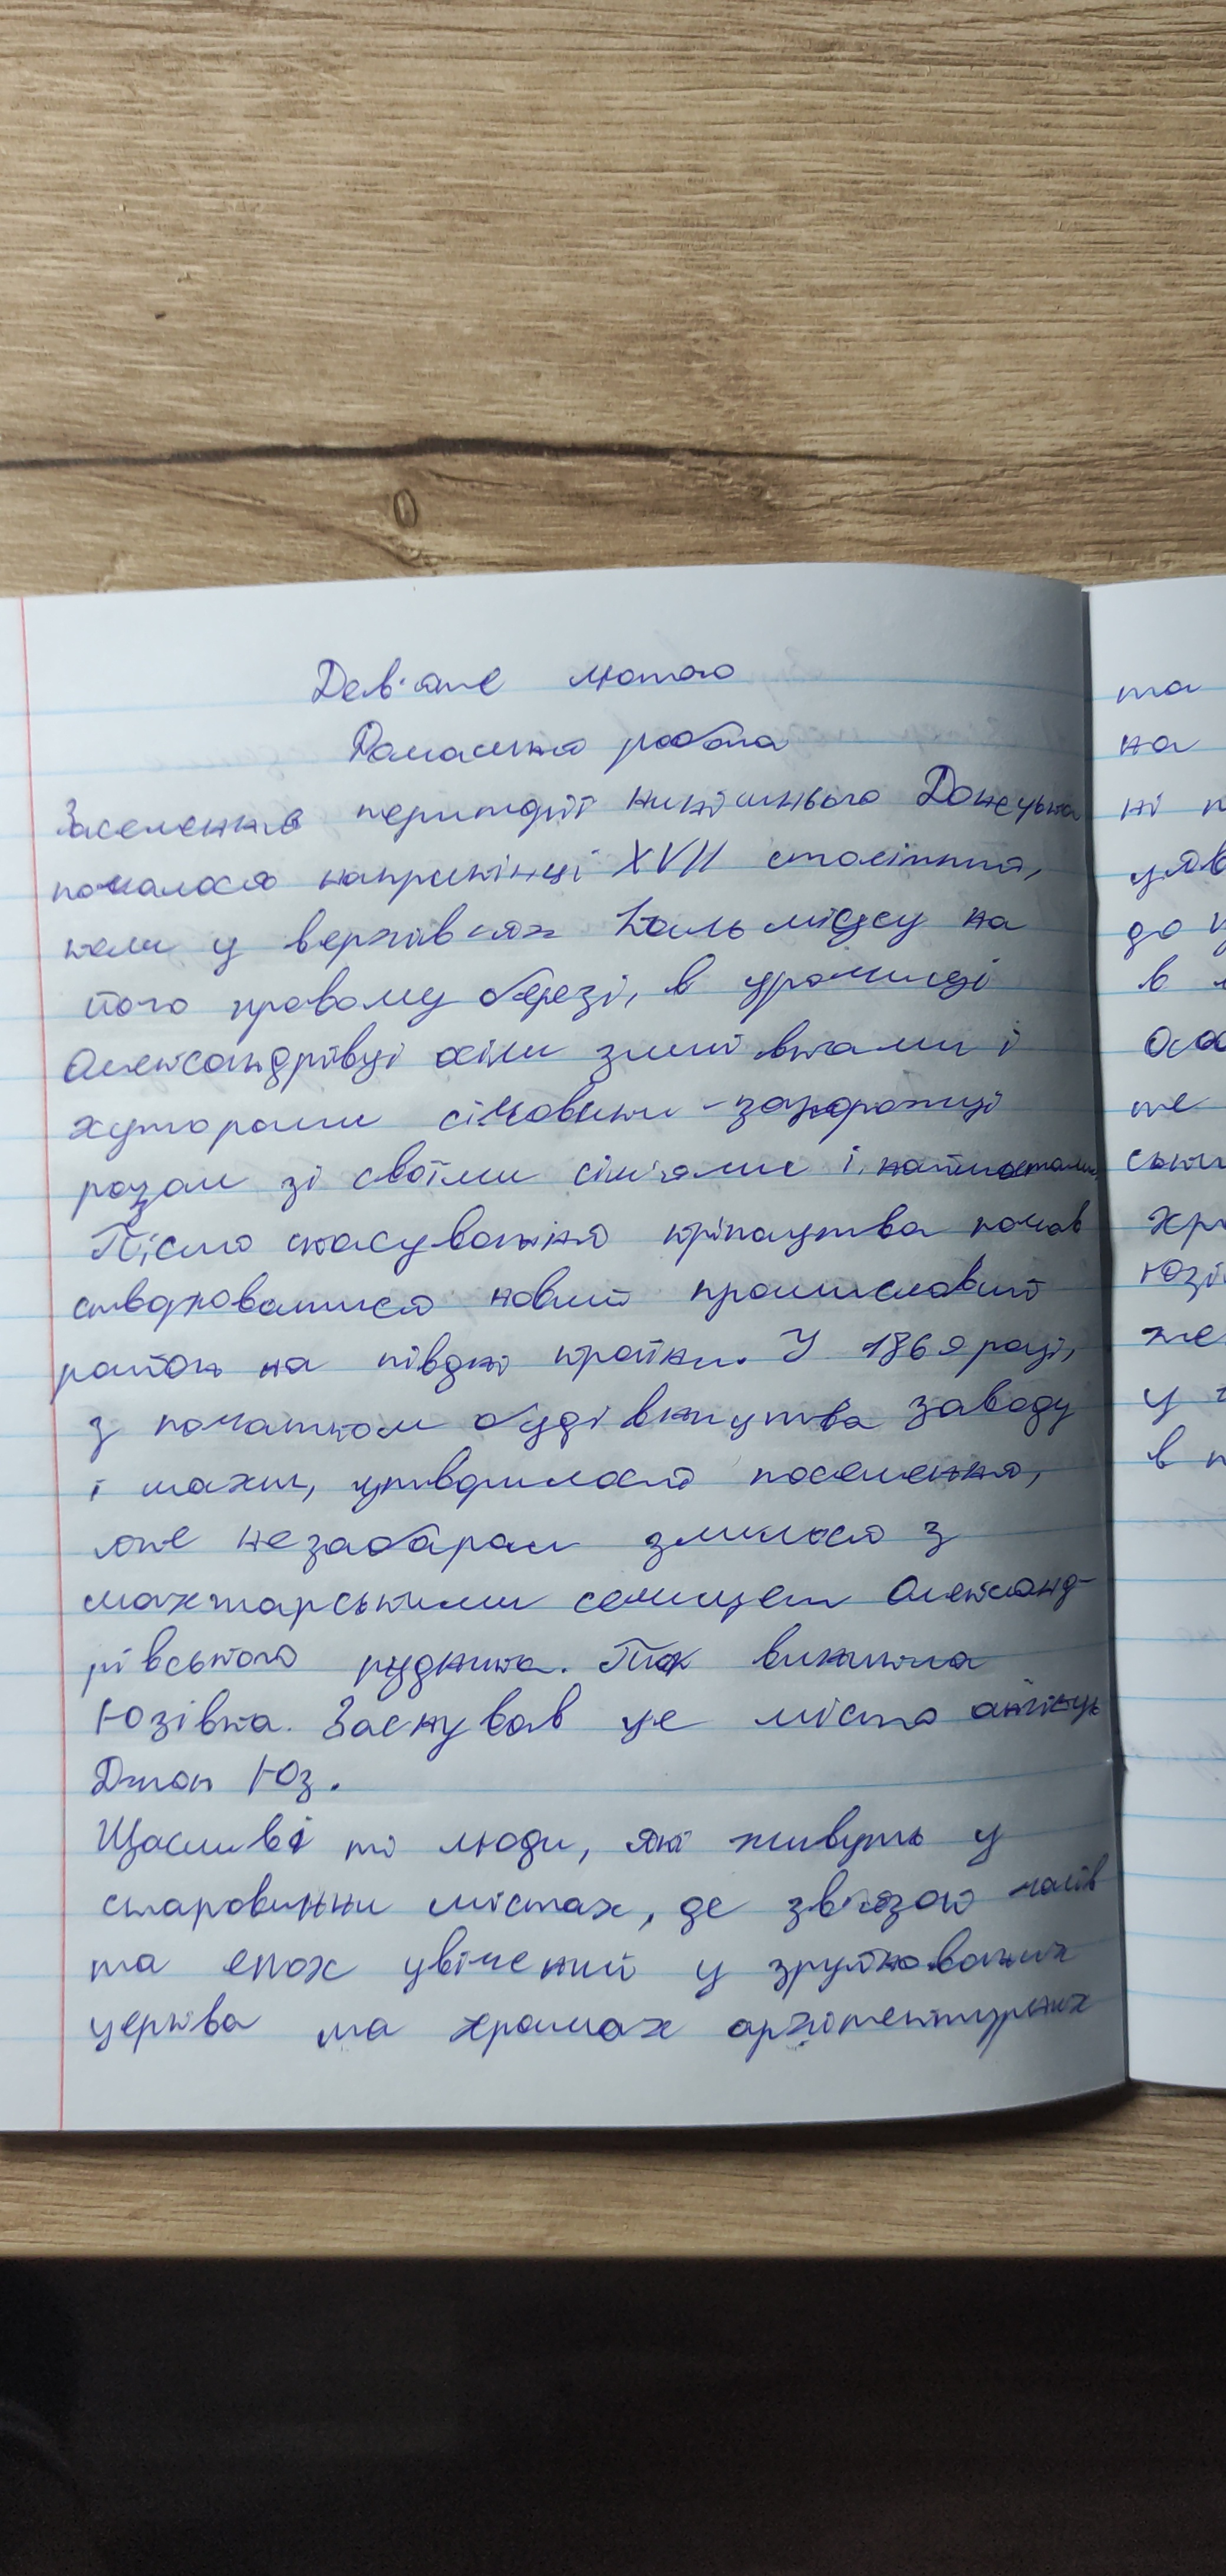 Дев'яте лютого
Домашня робота
Заселення території нинішнього Донецька
почалося наприкінці XVII століття,
коли у верхів'ях Кальміусу на
його правому березі, в урочищі
Олександрівці осіли зимівками і
хуторами січовики-запорожці
разом зі своїми сім'ями і
Після скасування кріпацтва почав
створюватися новий промисловий
район на півдні країни. У 1869 році,
з початком будівництва заводу
і шахти, утворилося поселення,
яке незабаром злилося з
шахтарськими селищем Олександ-
рівського рудника. Так виникла
Юзівка. Заснував це місто
Джон Юз.
Щасливі ті люди, які живуть у
старовинни містах, де зв'язок часів
та епох увічнений у зруйнованих
церква та храмах архітектурних
та
на
ні
до
в
же
у
в